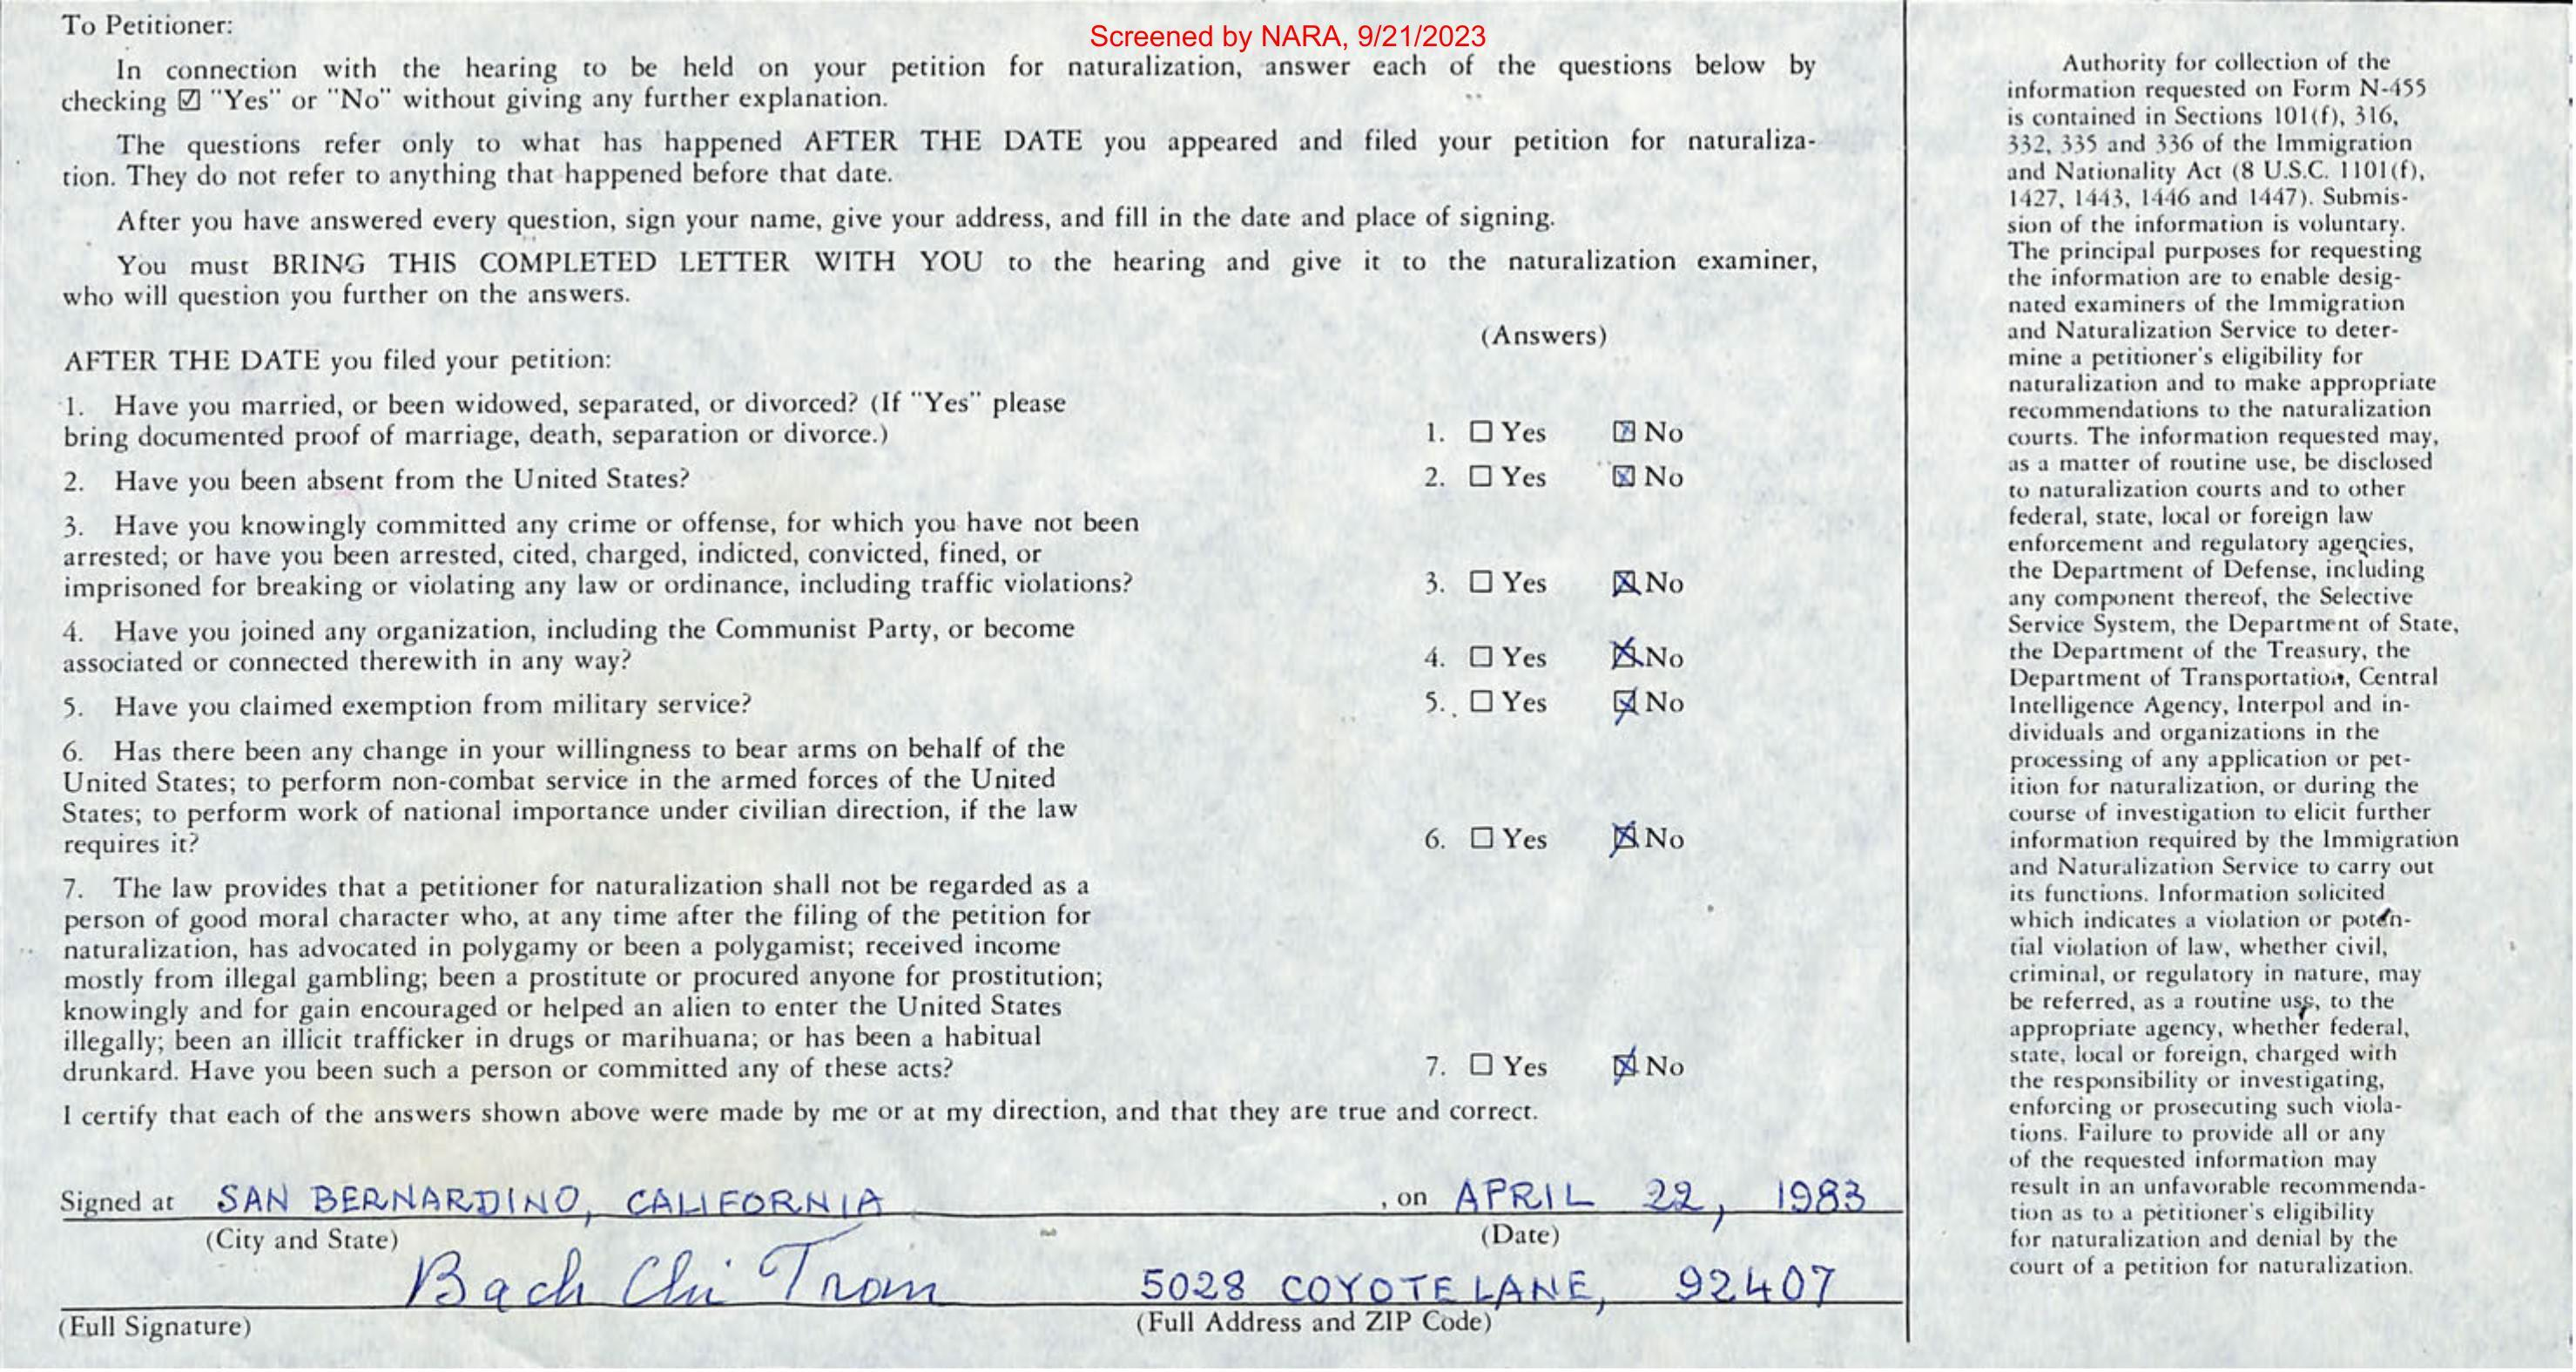 Screened by NARA, 9/21/2023
To Petitioner:
In connection with the hearing to be held on your petition for naturalization, answer each of the questions below by
checking ☑ "Yes" or "No" without giving any further explanation.
The questions refer only to what has happened AFTER THE DATE you appeared and filed your petition for naturaliza-
tion. They do not refer to anything that happened before that date.
After you have answered every question, sign your name, give your address, and fill in the date and place of signing.
You must BRING THIS COMPLETED LETTER WITH YOU to the hearing and give it to the naturalization examiner,
who will question you further on the answers.
(Answers)
AFTER THE DATE you filed your petition:
1. Have you married, or been widowed, separated, or divorced? (If "Yes" please
bring documented proof of marriage, death, separation or divorce.)
1. ☐ Yes ☒ No
2. Have you been absent from the United States?
2. ☐ Yes ☒ No
3. Have you knowingly committed any crime or offense, for which you have not been
arrested; or have you been arrested, cited, charged, indicted, convicted, fined, or
imprisoned for breaking or violating any law or ordinance, including traffic violations?
3. ☐ Yes ☒ No
4. Have you joined any organization, including the Communist Party, or become
associated or connected therewith in any way?
4. ☐ Yes ☒ No
5. Have you claimed exemption from military service?
5. ☐ Yes ☒ No
6. Has there been any change in your willingness to bear arms on behalf of the
United States; to perform non-combat service in the armed forces of the United
States; to perform work of national importance under civilian direction, if the law
requires it?
6. ☐ Yes ☒ No
7. The law provides that a petitioner for naturalization shall not be regarded as a
person of good moral character who, at any time after the filing of the petition for
naturalization, has advocated in polygamy or been a polygamist; received income
mostly from illegal gambling; been a prostitute or procured anyone for prostitution;
knowingly and for gain encouraged or helped an alien to enter the United States
illegally; been an illicit trafficker in drugs or marihuana; or has been a habitual
drunkard. Have you been such a person or committed any of these acts?
7. ☐ Yes ☒ No
I certify that each of the answers shown above were made by me or at my direction, and that they are true and correct.
Signed at SAN BERNARDINO, CALIFORNIA , on APRIL 22, 1983
(City and State) (Date)
Bach Chi Tran 5028 COYOTE LANE, 92407
(Full Signature) (Full Address and ZIP Code)
Authority for collection of the
information requested on Form N-455
is contained in Sections 101(f), 316,
332, 335 and 336 of the Immigration
and Nationality Act (8 U.S.C. 1101(f),
1427, 1443, 1446 and 1447). Submis-
sion of the information is voluntary.
The principal purposes for requesting
the information are to enable desig-
nated examiners of the Immigration
and Naturalization Service to deter-
mine a petitioner's eligibility for
naturalization and to make appropriate
recommendations to the naturalization
courts. The information requested may,
as a matter of routine use, be disclosed
to naturalization courts and to other
federal, state, local or foreign law
enforcement and regulatory agencies,
the Department of Defense, including
any component thereof, the Selective
Service System, the Department of State,
the Department of the Treasury, the
Department of Transportation, Central
Intelligence Agency, Interpol and in-
dividuals and organizations in the
processing of any application or pet-
ition for naturalization, or during the
course of investigation to elicit further
information required by the Immigration
and Naturalization Service to carry out
its functions. Information solicited
which indicates a violation or poten-
tial violation of law, whether civil,
criminal, or regulatory in nature, may
be referred, as a routine use, to the
appropriate agency, whether federal,
state, local or foreign, charged with
the responsibility or investigating,
enforcing or prosecuting such viola-
tions. Failure to provide all or any
of the requested information may
result in an unfavorable recommenda-
tion as to a petitioner's eligibility
for naturalization and denial by the
court of a petition for naturalization.